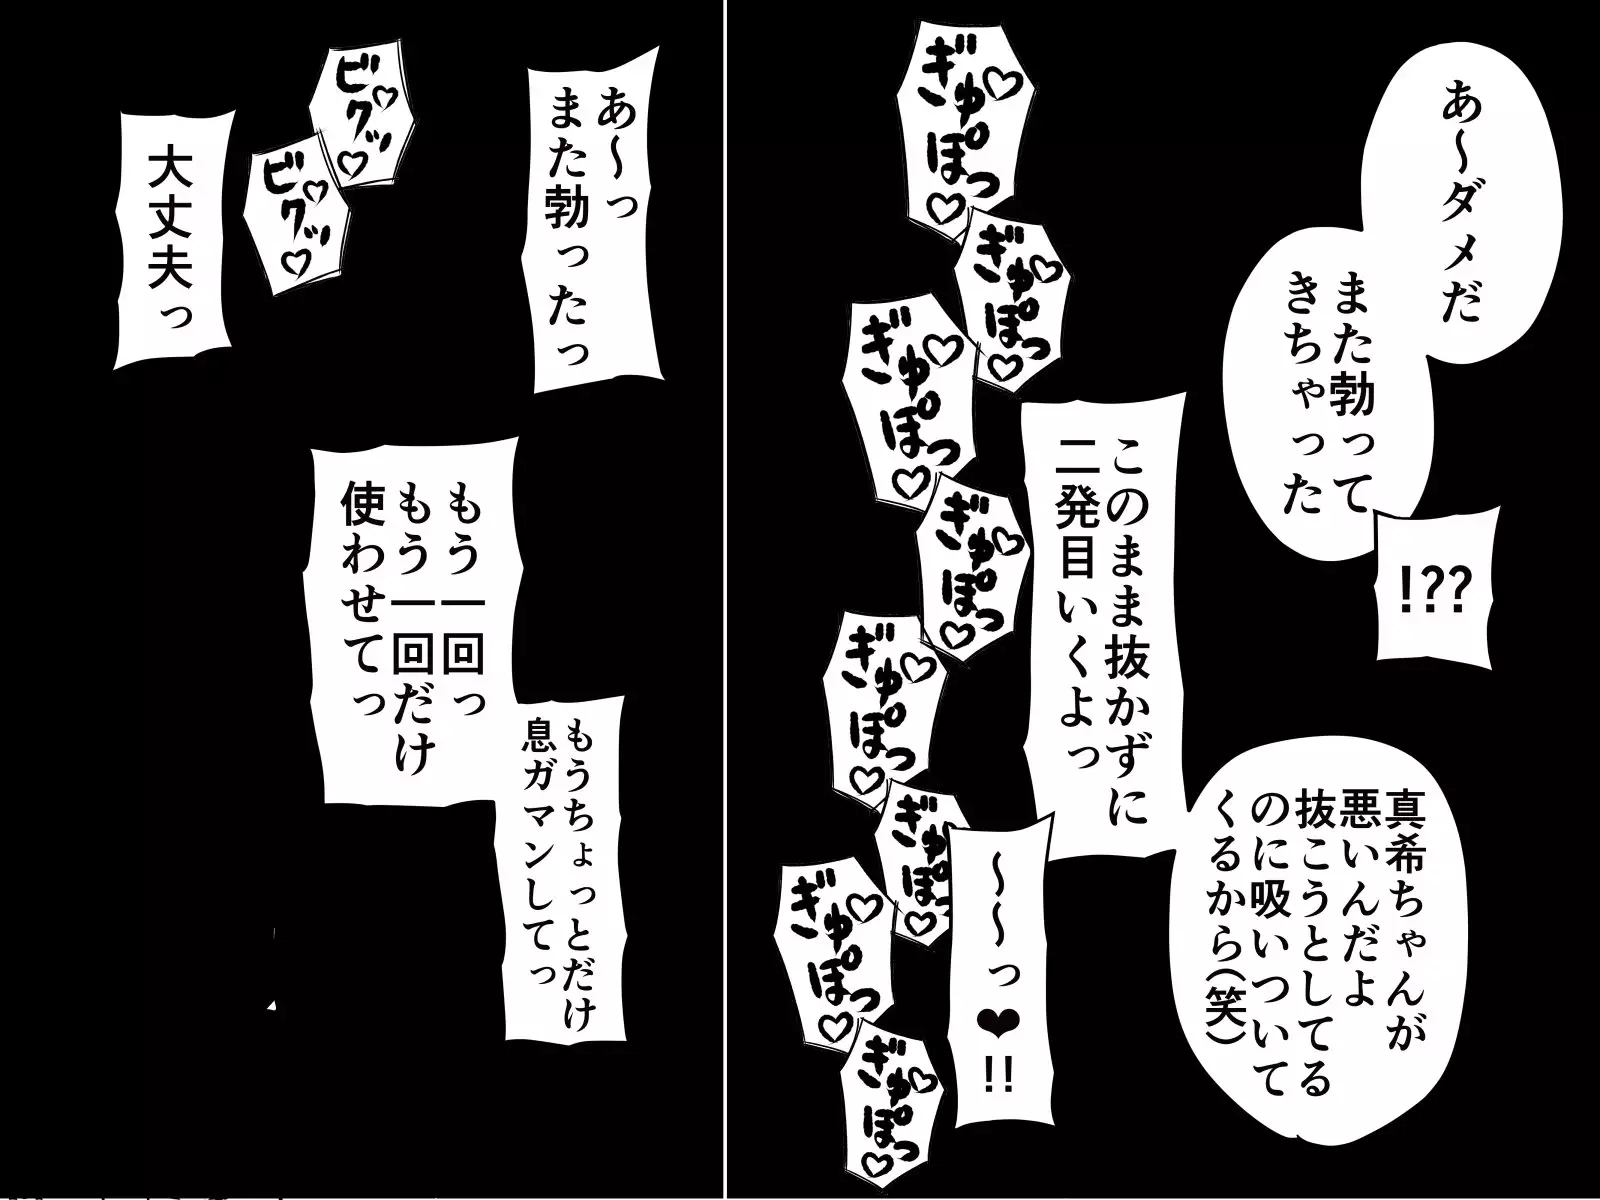 あ～ダメだ
また勃って
きちゃった
!??
このまま抜かずに
二発目いくよっ
真希ちゃんが
悪いんだよ
抜こうとしてる
のに吸いついて
くるから(笑)
～～っ❤!!
ぎゅぽっ♡
ぎゅぽっ♡
ぎゅぽっ♡
ぎゅぽっ♡
ぎゅぽっ♡
ぎゅぽっ♡
ぎゅぽっ♡
ぎゅぽっ♡
あ～っ
また勃ったっ
ビクッ♡♡
ビクッ♡♡
大丈夫っ
もう一回っ
もう一回だけ
使わせてっ
もうちょっとだけ
息ガマンしてっ